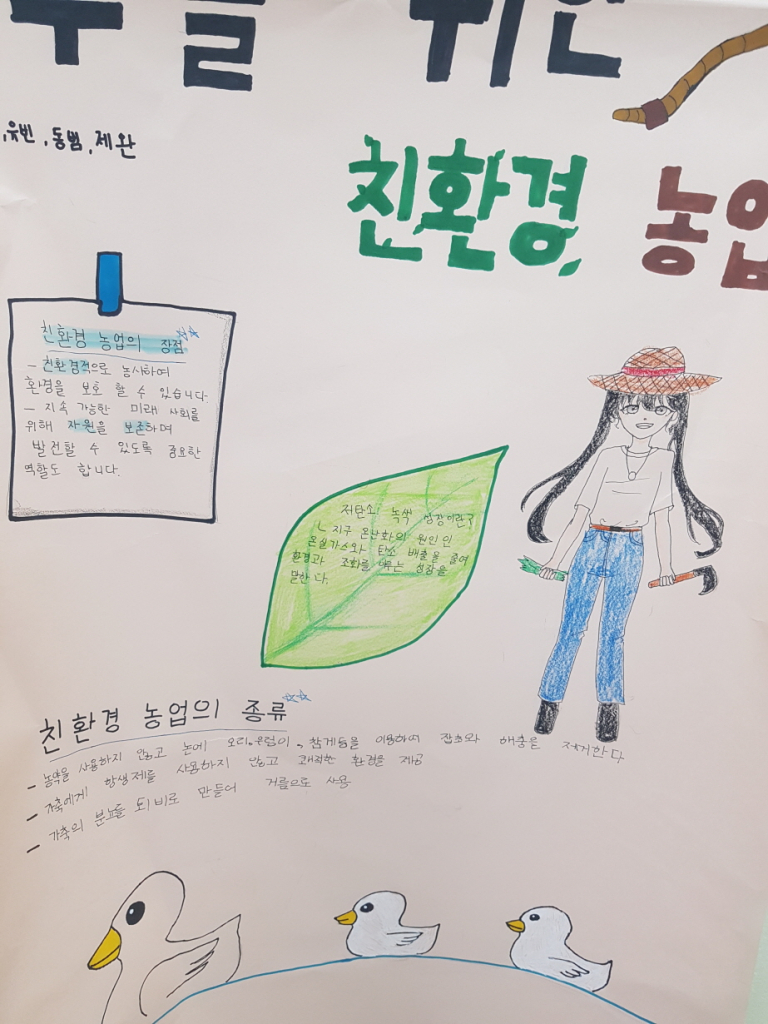 를 위한
유빈, 동범, 제완
친환경 농업
친환경 농업의 장점
- 친환경적으로 농사하여
환경을 보호 할 수 있습니다.
- 지속 가능한 미래 사회를
위해 자원을 보존하며
발전할 수 있도록 중요한
역할도 합니다.
저탄소 녹색 성장이란?
지구 온난화의 원인인
온실가스와 탄소 배출을 줄여
환경과 조화를 이루는 성장을
말한다.
친환경 농업의 종류
- 농약을 사용하지 않고 논에 오리, 우렁이, 참게등을 이용하여 잡초와 해충을 제거한다
- 가축에게 항생제를 사용하지 않고 쾌적한 환경을 제공
- 가축의 분뇨를 퇴비로 만들어 거름으로 사용